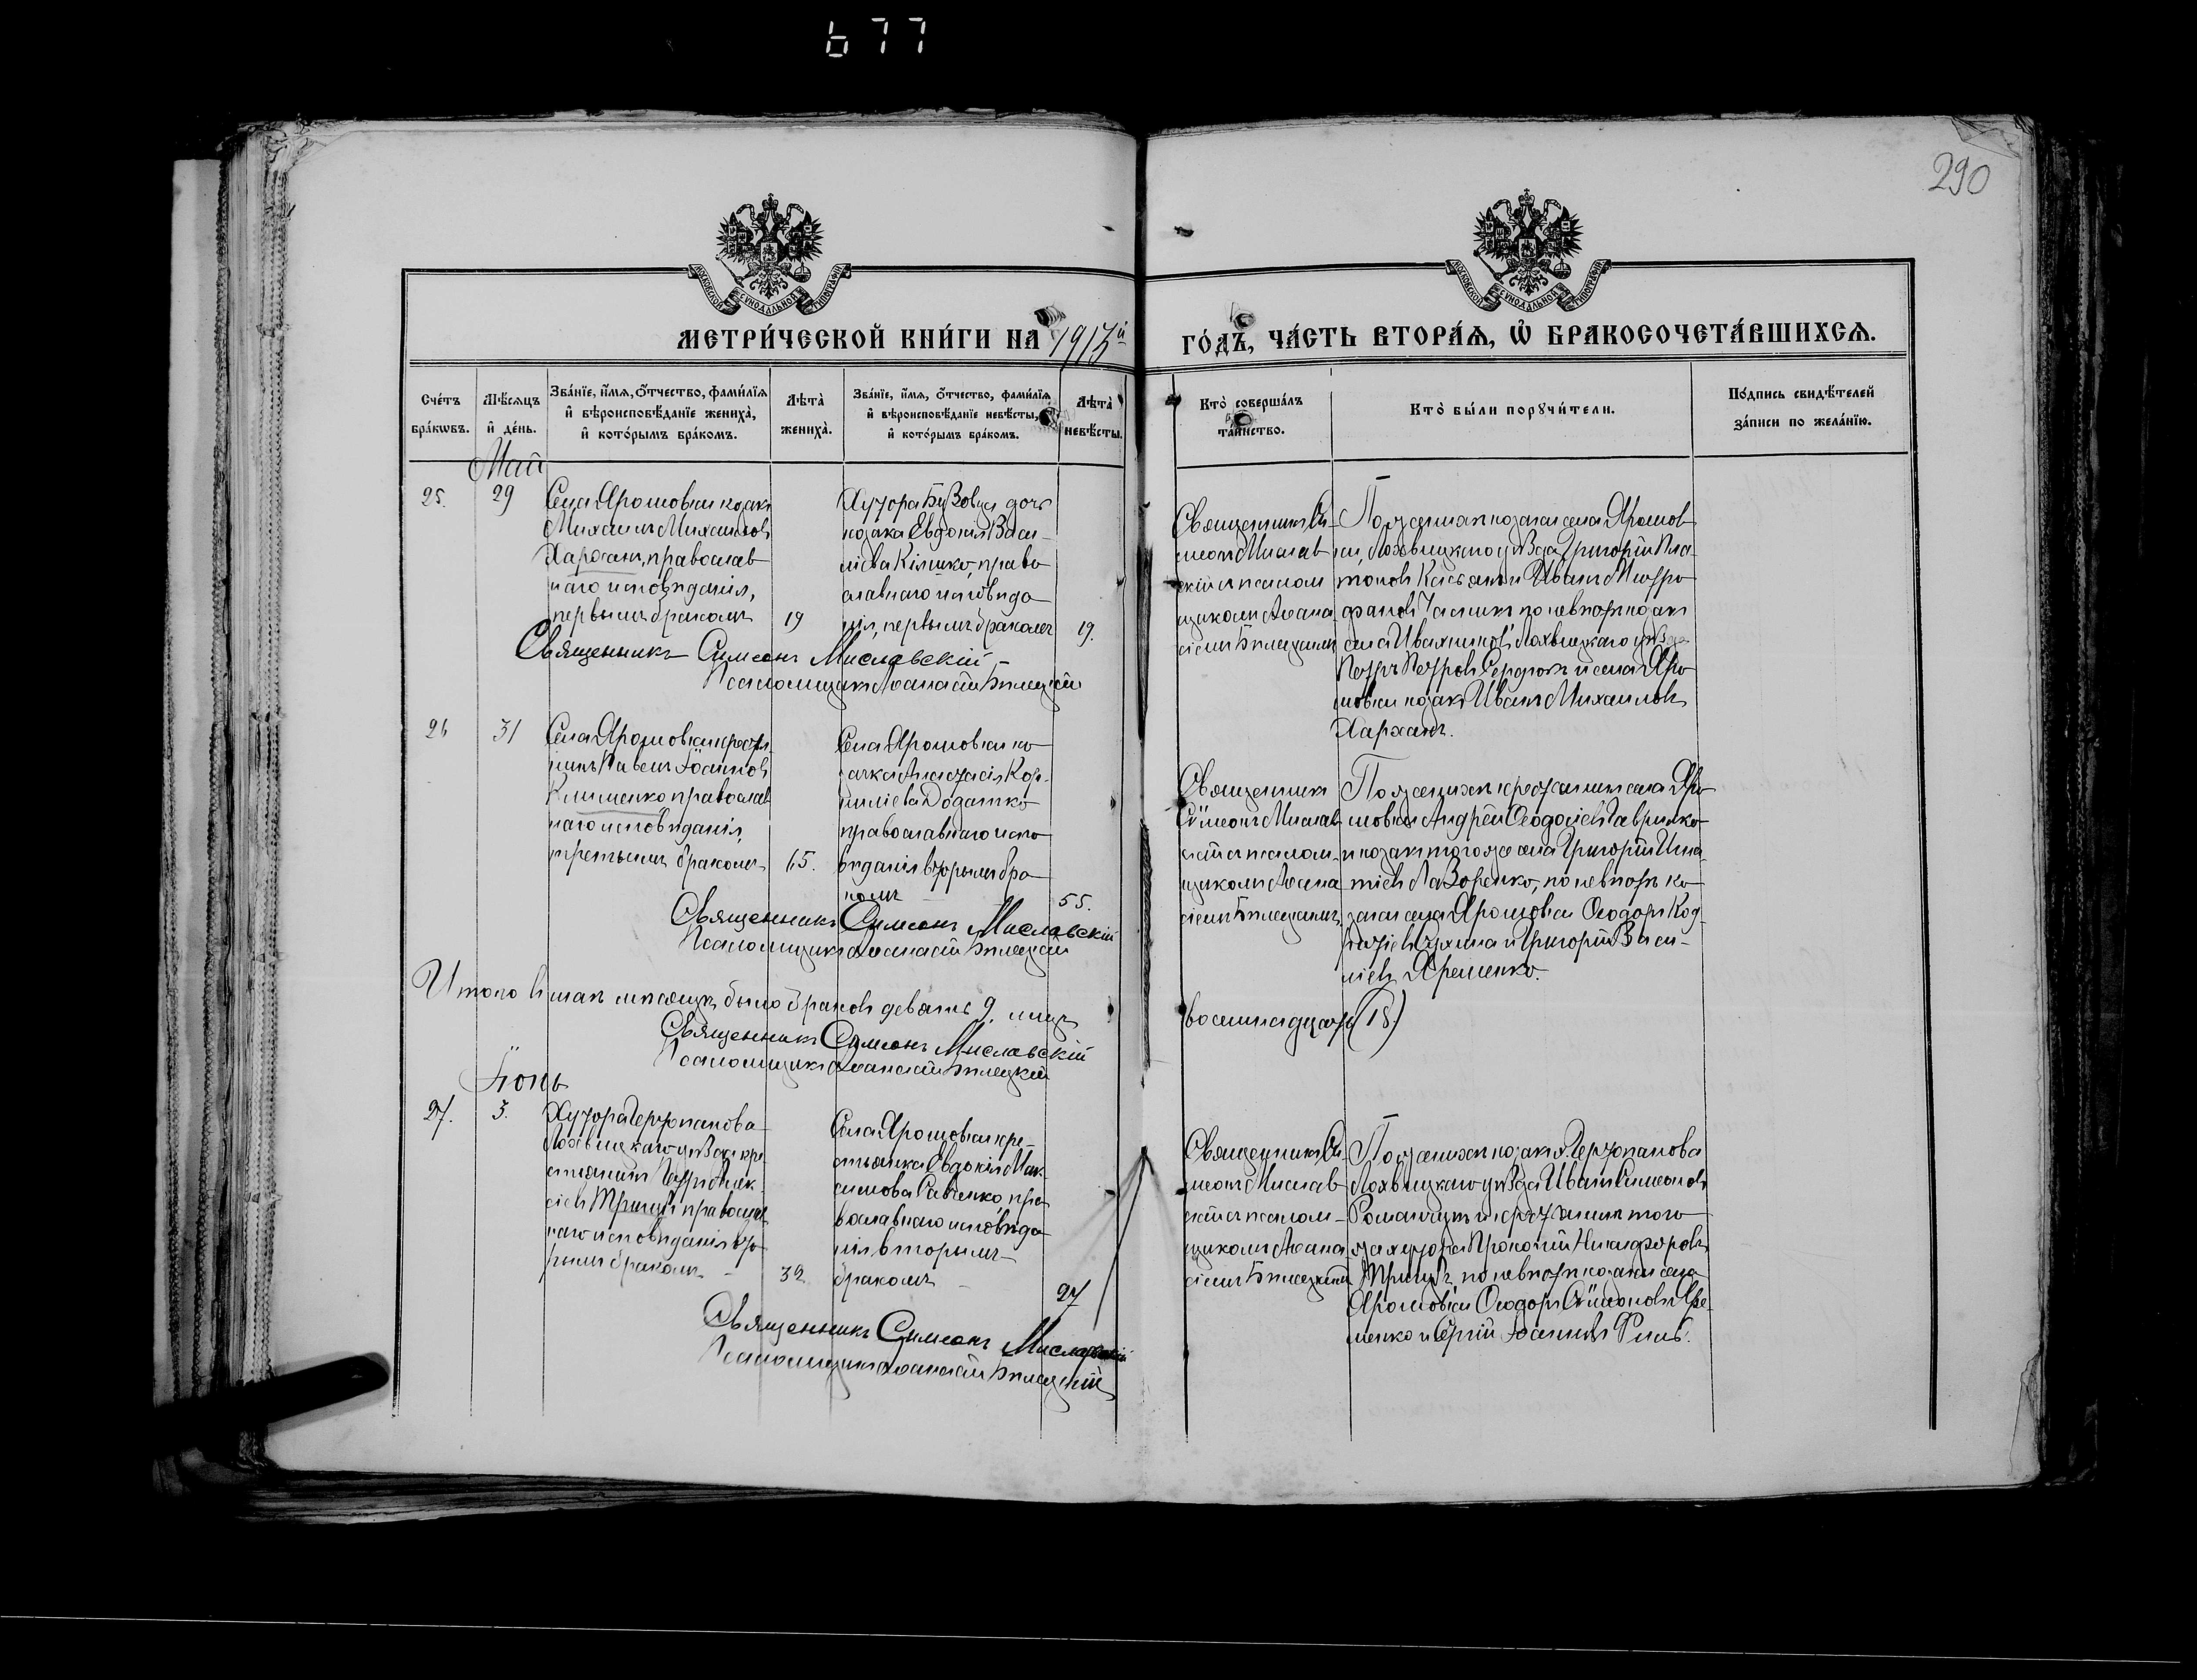 677
290
МОСКОВСКОЙ СѴНОДАЛЬНОЙ ТИПОГРАФІИ
МОСКОВСКОЙ СѴНОДАЛЬНОЙ ТИПОГРАФІИ
МЕТРИ́ЧЕСКОЙ КНИ́ГИ НА
ГО́ДЪ, ЧА́СТЬ ВТОРА́Я, Ѿ БРАКОСОЧЕТА́ВШИХСЯ.
Сче́тъ бра́кѡвъ.
Мѣ́сяцъ и҆ де́нь.
Зва́нїе, и҆́мя, ѻ҆́тчество, фами́лїя
и҆ вѣроисповѣ́данїе жениха̀,
и҆ кото́рымъ бра́комъ.
Лѣта̀ жениха̀.
Зва́нїе, и҆́мя, ѻ҆́тчество, фами́лїя
и҆ вѣроисповѣ́данїе невѣ́сты,
и҆ кото́рымъ бра́комъ.
Лѣта̀ невѣ́сты.
Кто̀ соверша́лъ та́инство.
Кто̀ бы́ли порꙋчи́тели.
По́дпись свидѣ́телей за́писи по жела́нїю.
Май
25.
29
Села Ярошовки козакъ
Михаилъ Михаиловъ
Хархан, православ
наго исповѣданія,
первымъ бракомъ
19
дочь
козака Евдокія Васи-
ліева Кілико, право
славнаго исповѣда
нія, первымъ бракомъ
19.
Священникъ Си-
меонъ Мислав
скій съ псалом
щикомъ Аѳана
сіемъ Бѣлецкимъ
По женихѣ козаки села Ярошов
ки, Лохвицкаго уѣзда Григорій Пла-
тоновъ и Иванъ Митро
фановъ по невѣстѣ козакъ
села Лохвицкаго уѣзда
Петръ Петровъ и села Яро
шовки козакъ Иванъ Михаиловъ
Харханъ.
Священникъ Симеонъ Миславскій
Псаломщикъ Аѳанасій Бѣлецкій
26
31
Села Ярошовки крестья
нинъ Павелъ Іоанновъ
Клименко православ
наго исповѣданія,
третьимъ бракомъ
65.
Села Ярошовки ко
зачка Анастасія Кор-
ниліева Додатко
православнаго испо
вѣданія вторымъ бра
комъ
55.
Священникъ
Сѵмеонъ Мислав
скій съ псалом-
щикомъ Аѳана
сіемъ Бѣлецкимъ
По женихѣ крестьянинъ села Яро
шовки Андрей Ѳеодосіевъ Гавришко
и козакъ того же села Григорій Игна
тіевъ Лазоренко, по невѣстѣ ко
заки села Ярошовки Ѳеодоръ Код-
ратіевъ и Григорій Васи-
ліевъ Яременко.
Священникъ Симеонъ Миславскій
Псаломщикъ Аѳанасій Бѣлецкій
Итого въ маѣ мѣсяцѣ было браковъ девять 9. лицъ
восемнадцать (18)
Священникъ Симеонъ Миславскій
Псаломщикъ Аѳанасій Бѣлецкій
Іюнь
27.
3.
Хутора Чертопанова
Лохвицкаго уѣзда кре
стьянинъ Петръ Алек
сіевъ православ
наго исповѣданія вто
рымъ бракомъ
32
Села Ярошовки кре-
стьянка Евдокія Мак
симова Савченко, пра
вославнаго исповѣда
нія вторымъ
бракомъ
27
Священникъ Си-
меонъ Мислав
скій съ псалом-
щикомъ Аѳана
сіемъ Бѣлецкимъ
По женихѣ козакъ х. Чертопанова
Лохвицкаго уѣзда Иванъ Симеоновъ
Романчукъ и крестьянинъ того
же хутора Прокопій Никифоровъ
по невѣстѣ козаки села
Ярошовки Ѳеодоръ Сѵмеоновъ Яре-
менко и Сергій Іоанновъ
Священникъ Симеонъ Миславскій
Псаломщикъ Аѳанасій Бѣлецкій